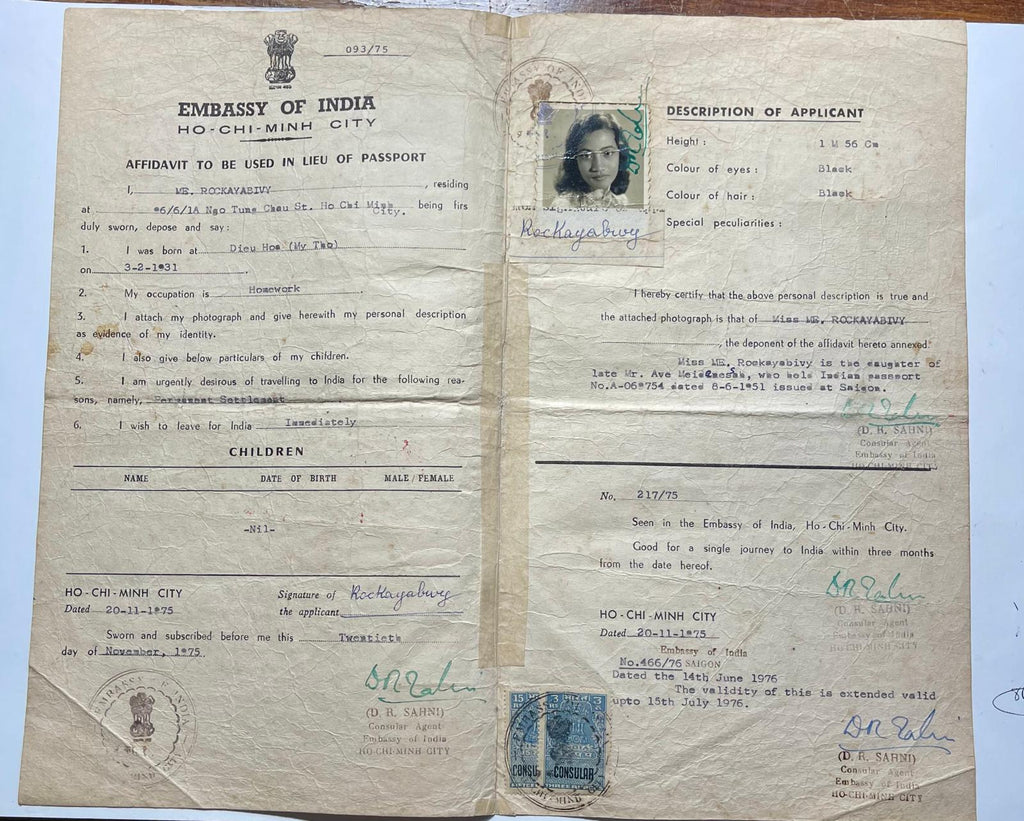 093/75
EMBASSY OF INDIA
HO-CHI-MINH CITY
AFFIDAVIT TO BE USED IN LIEU OF PASSPORT
I, ME. ROCKAYABIVY, residing
at 6/6/1A Ngo Tung Chau St. Ho Chi Minh City. being firs
duly sworn, depose and say :
1. I was born at Dieu Hoa (My Tho)
on 3-2-1931.
2. My occupation is Homework.
3. I attach my photograph and give herewith my personal description
as evidence of my identity.
4. I also give below particulars of my children.
5. I am urgently desirous of travelling to India for the following rea-
sons, namely, Permanent Settlement
6. I wish to leave for India Immediately
CHILDREN
NAME DATE OF BIRTH MALE / FEMALE
-Nil-
HO-CHI-MINH CITY
Dated 20-11-1975
Signature of Rockayabivy
the applicant
Sworn and subscribed before me this Twentieth
day of November, 1975.
(D. R. SAHNI)
Consular Agent
Embassy of India
HO-CHI-MINH CITY
EMBASSY OF INDIA
Rockayabivy
15 3 3
CONSULAR
DESCRIPTION OF APPLICANT
Height : 1 M 56 Cm
Colour of eyes : Black
Colour of hair : Black
Special peculiarities :
I hereby certify that the above personal description is true and
the attached photograph is that of Miss ME. ROCKAYABIVY
, the deponent of the affidavit hereto annexed.
Miss ME. Rockayabivy is the daughter of
late Mr. Ave, who hols Indian passport
dated 8-6-1951 issued at Saigon.
(D. R. SAHNI)
Consular Agent
Embassy of India
HO-CHI-MINH CITY
No. 217/75
Seen in the Embassy of India, Ho-Chi-Minh City.
Good for a single journey to India within three months
from the date hereof.
(D. R. SAHNI)
Consular Agent
Embassy of India
HO-CHI-MINH CITY
HO-CHI-MINH CITY
Dated 20-11-1975
Embassy of India
No.466/76 SAIGON
Dated the 14th June 1976
The validity of this is extended valid
upto 15th July 1976.
(D. R. SAHNI)
Consular Agent
Embassy of India
HO-CHI-MINH CITY